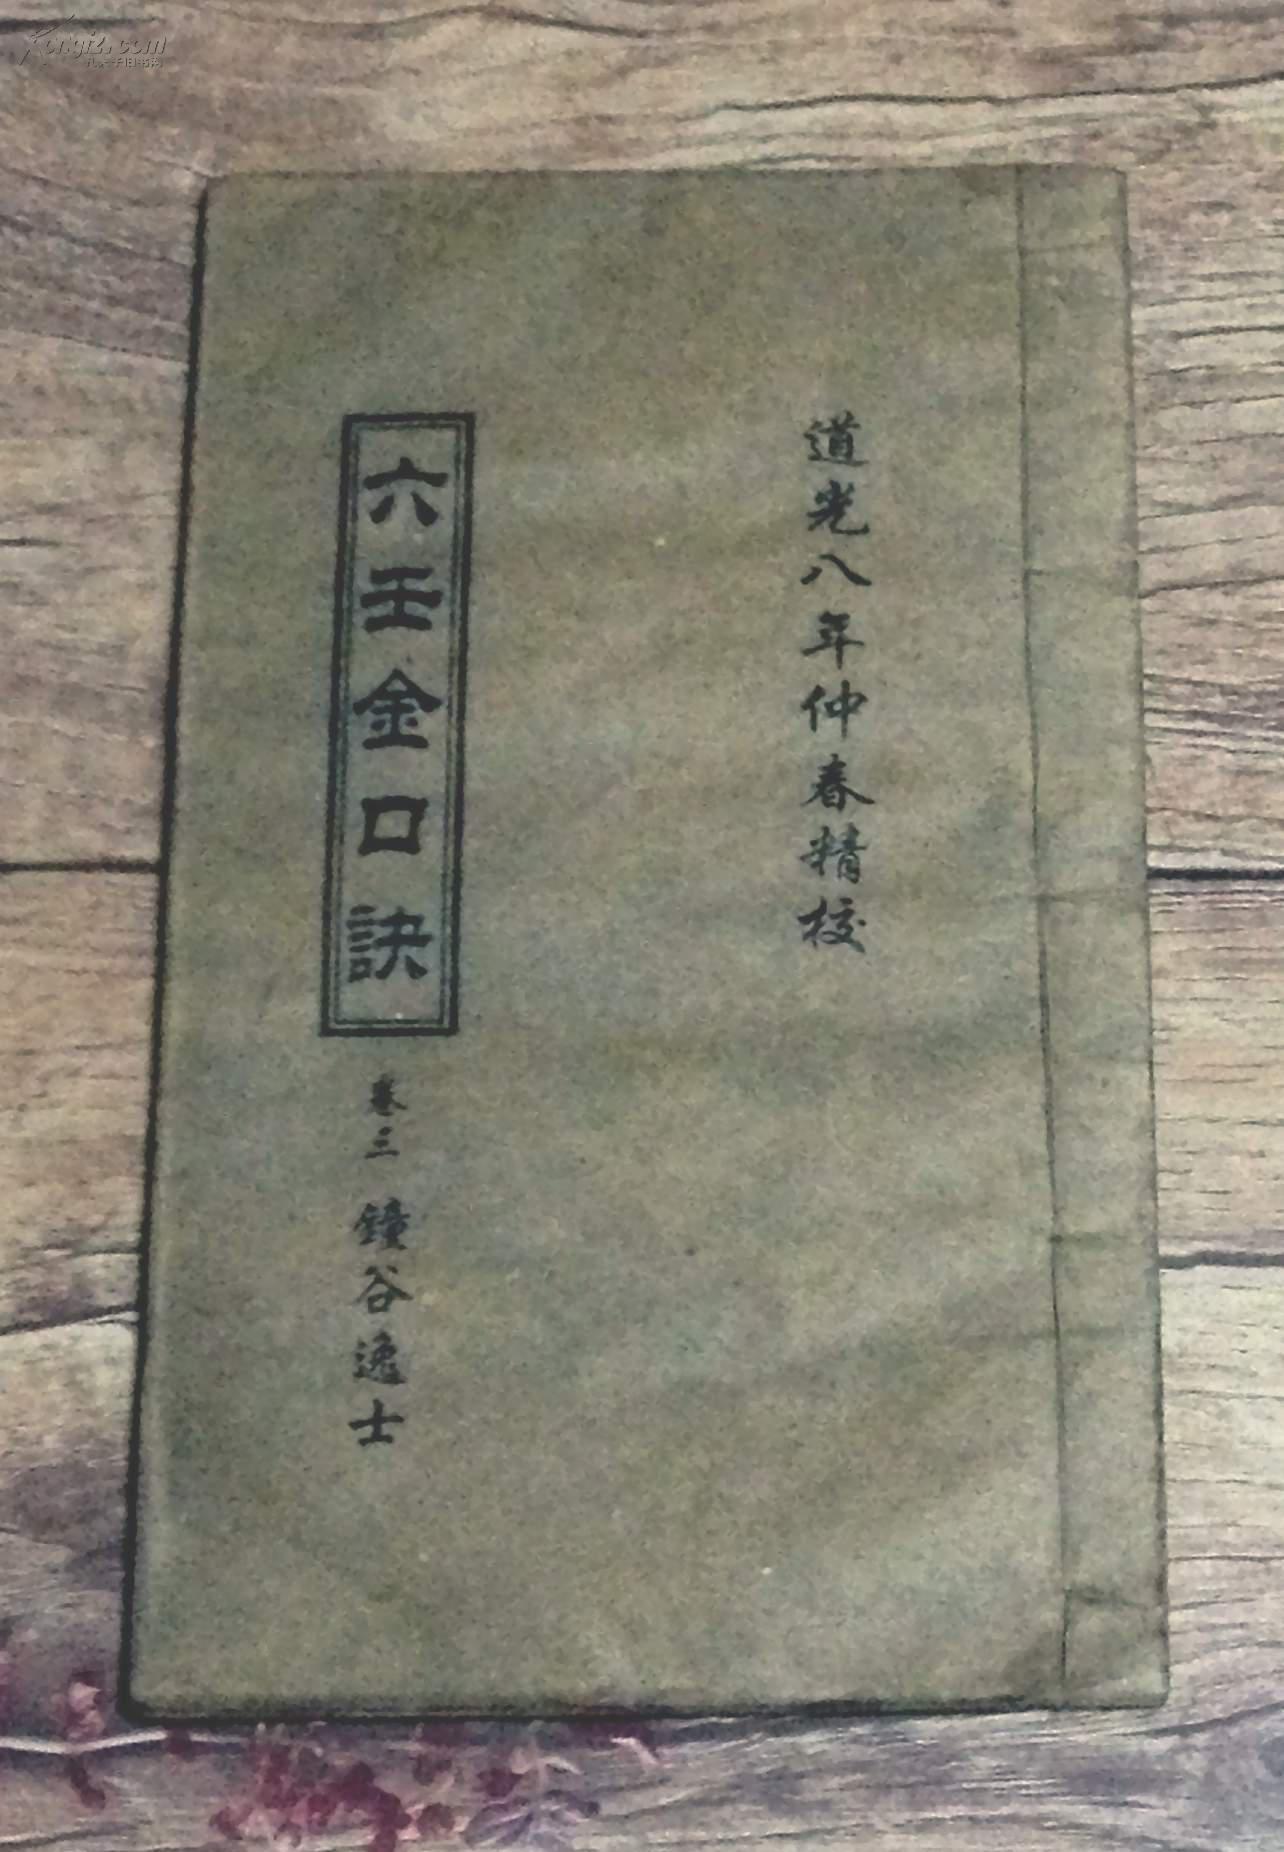 道光八年仲春精校
六壬金口訣
卷三 鐘谷逸士
Kongfz.com
孔夫子旧书网